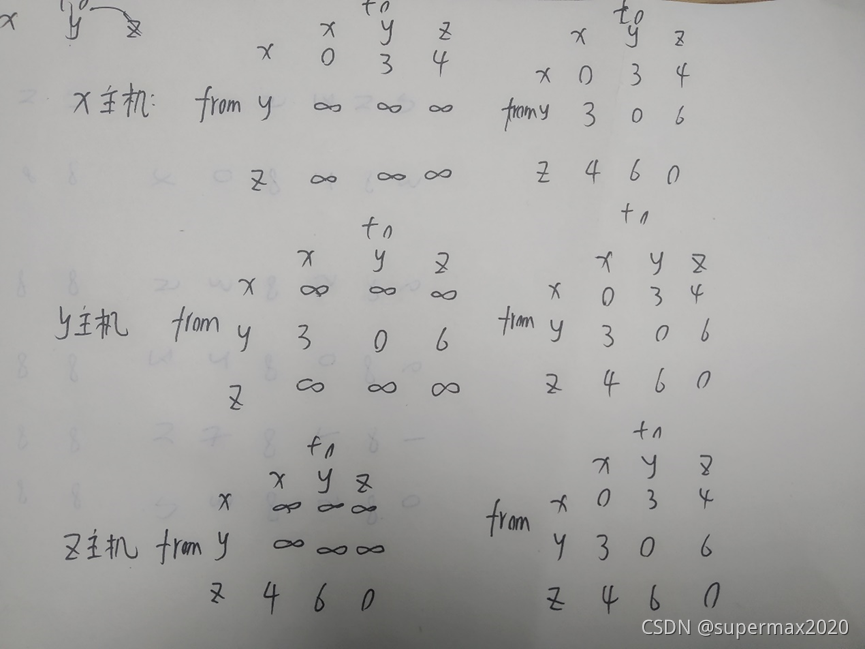 x y z
to to
x y z x y z
x 0 3 4 x 0 3 4
x主机: from y ∞ ∞ ∞ from y 3 0 6
z ∞ ∞ ∞ z 4 6 0
to to
x y z x y z
x ∞ ∞ ∞ x 0 3 4
y主机 from y 3 0 6 from y 3 0 6
z ∞ ∞ ∞ z 4 6 0
to to
x y z x y z
x ∞ ∞ ∞ from x 0 3 4
z主机 from y ∞ ∞ ∞ y 3 0 6
z 4 6 0 z 4 6 0
CSDN @supermax2020